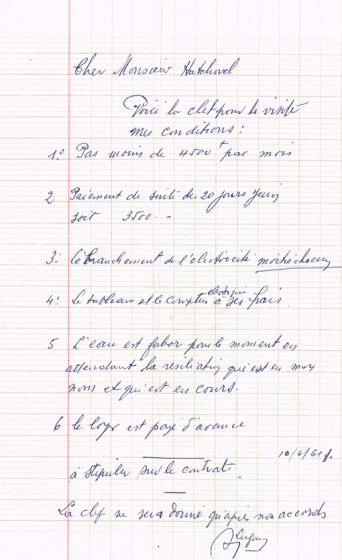 Cher Monsieur Hutchovel
Voici la clef pour la visite
mes conditions :
1º Pas moins de 4500 f par mois
2 Paiement de suite des 20 jours juin
soit 3500. -
3: le branchement de l'électricité moitié chacun
4: Le tableau et le compteur électrique à ses frais
5 L'eau est à pour le moment en
attendant la résiliation qui est en mon
nom et qui est en cours.
6 le loyer est payé d'avance
10/6/61
à stipuler sur le contrat.
La clef ne sera donné qu'après nos accords